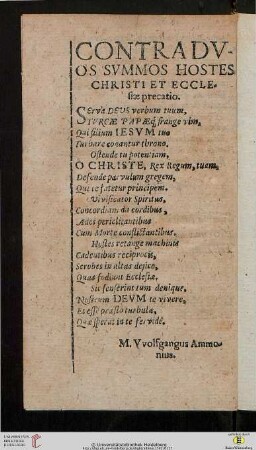 CONTRA DVOS
SVMMOS HOSTES
CHRISTI ET ECCLE-
siæ precatio.
SErva DEUS verbum tuum,
TURCÆ PAPÆq́; frange vim,
Qui filium IESVM tuo
Turbare conantur throno.
Ostende tu potentiam,
O CHRISTE, Rex Regum, tuam,
Defende parvulum gregem,
Qui te fatetur principem.
Vivificator Spiritus,
Concordiam da cordibus,
Ades periclitantibus
Cum Morte conflictantibus.
Hostes retunge machinis
Cadentibus reciprocis,
Scrobes in altas dejice,
Quas fodiunt Ecclesiæ.
Sic senserint tum denique,
Nostrum DEVM te vivere,
Et esse præstò turbulæ,
Quæ sperat in te fervidè.
M. VVolfgangus Ammo-
nius.